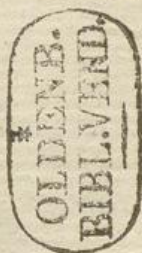 OLDENB.
BIBL.VEND.